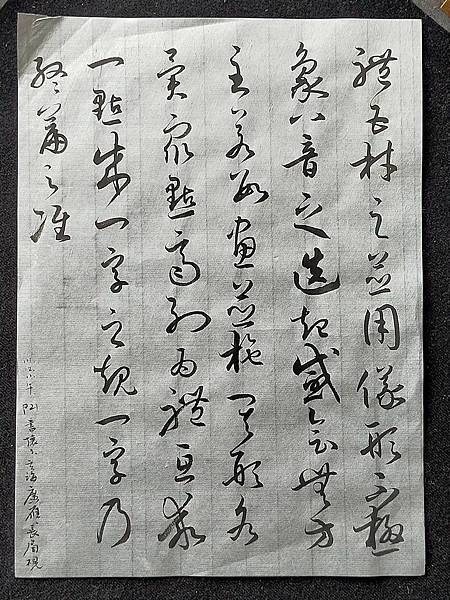 體五材之並用儀形不極
象八音之迭起感會無方
至若數畫並施其形各
異眾點齊列為體互乖
一點成一字之規一字乃
終篇之准